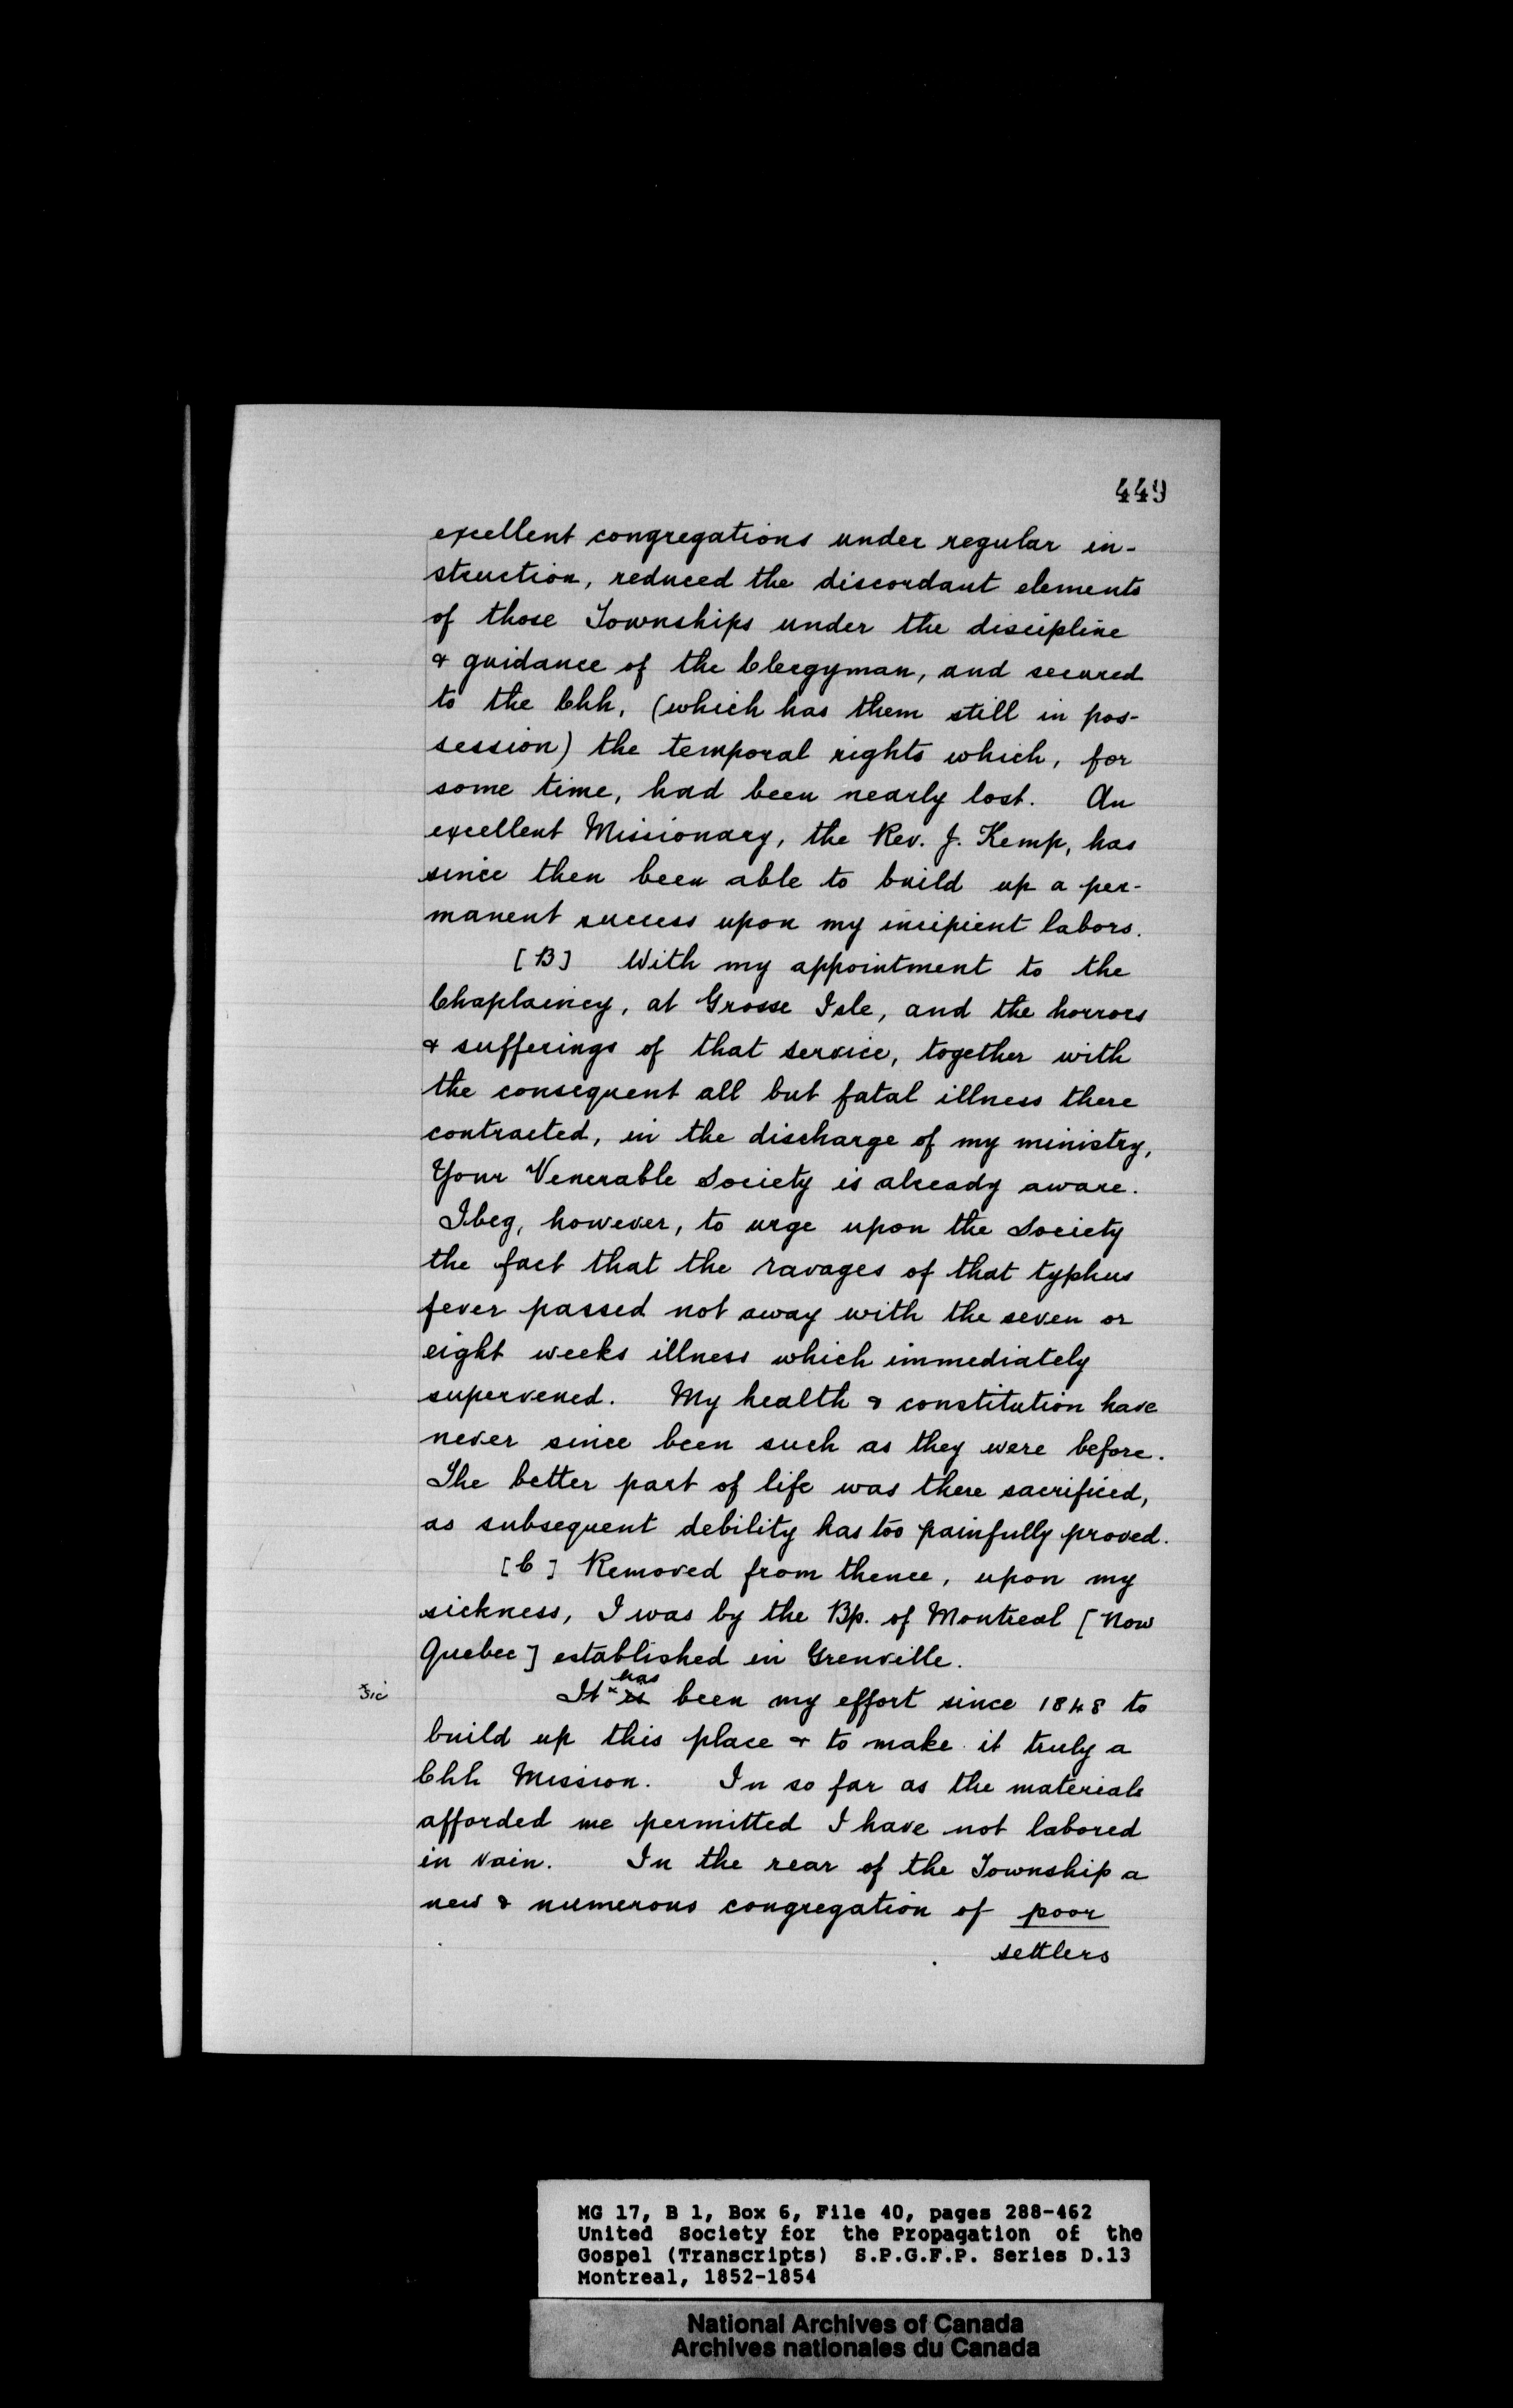 449
excellent congregations under regular in-
struction, reduced the discordant elements
of those Townships under the discipline
& guidance of the Clergyman, and secured
to the Chh, (which has them still in pos-
session) the temporal rights which, for
some time, had been nearly lost. An
excellent Missionary, the Rev. J. Kemp, has
since then been able to build up a per-
manent success upon my incipient labors.
[B] With my appointment to the
Chaplaincy, at Grosse Isle, and the horrors
& sufferings of that service, together with
the consequent all but fatal illness there
contracted, in the discharge of my ministry,
Your Venerable Society is already aware.
I beg, however, to urge upon the Society
the fact that the ravages of that typhus
fever passed not away with the seven or
eight weeks illness which immediately
supervened. My health & constitution have
never since been such as they were before.
The better part of life was there sacrificed,
as subsequent debility has too painfully proved.
[C] Removed from thence, upon my
sickness, I was by the Bp. of Montreal [Now
Quebec] established in Grenville.
has
x sic It x is been my effort since 1848 to
build up this place & to make it truly a
Chh Mission. In so far as the materials
afforded me permitted I have not labored
in vain. In the rear of the Township a
new & numerous congregation of poor
settlers
MG 17, B 1, Box 6, File 40, pages 288-462
United Society for the Propagation of the
Gospel (Transcripts) S.P.G.F.P. Series D.13
Montreal, 1852-1854
National Archives of Canada
Archives nationales du Canada